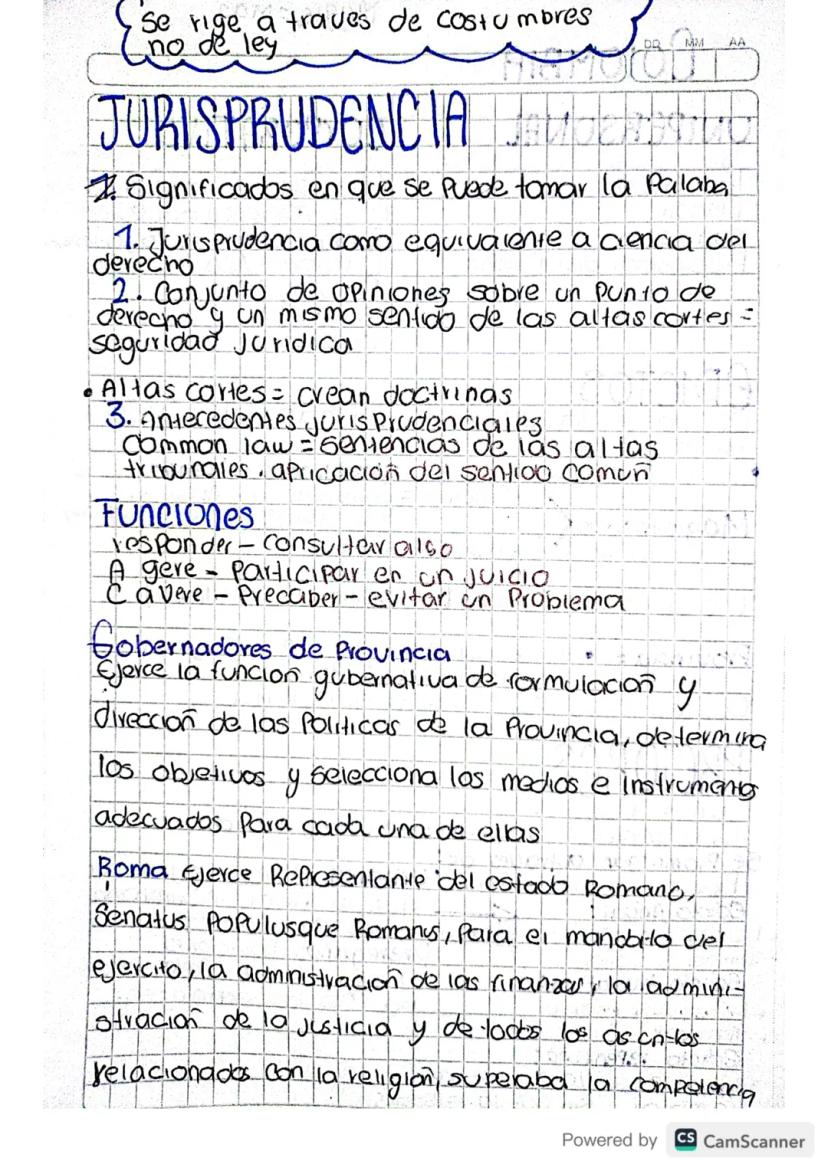 Se rige a traves de costumbres
no de ley
DD MM AA
JURISPRUDENCIA
Significados en que se puede tomar la Palaba
1. Jurisprudencia como equivalente a ciencia del
derecho
2. Conjunto de opiniones sobre un punto de
derecho y un mismo sentido de las altas cortes =
seguridad Juridica
• Altas cortes = crean doctrinas
3. antecedentes jurisprudenciales
Common law = sentencias de las altas
tribunales. aplicación del sentido común
Funciones
responder - consultar algo
Agere - Participar en un juicio
Cavere - Precaber - evitar un Problema
Gobernadores de Provincia
Ejerce la función gubernativa de formulación y
dirección de las Politicas de la Provincia, determina
los objetivos y selecciona los medios e instrumentos
adecuados para cada una de ellas
Roma Ejerce Representante del estado Romano,
Senatus Populusque Romanus, para el del
ejercito, la administración de las finanzas, la admini-
stración de la justicia y de todos los asuntos
relacionados con la religión, superaba la competencia
Powered by CS CamScanner